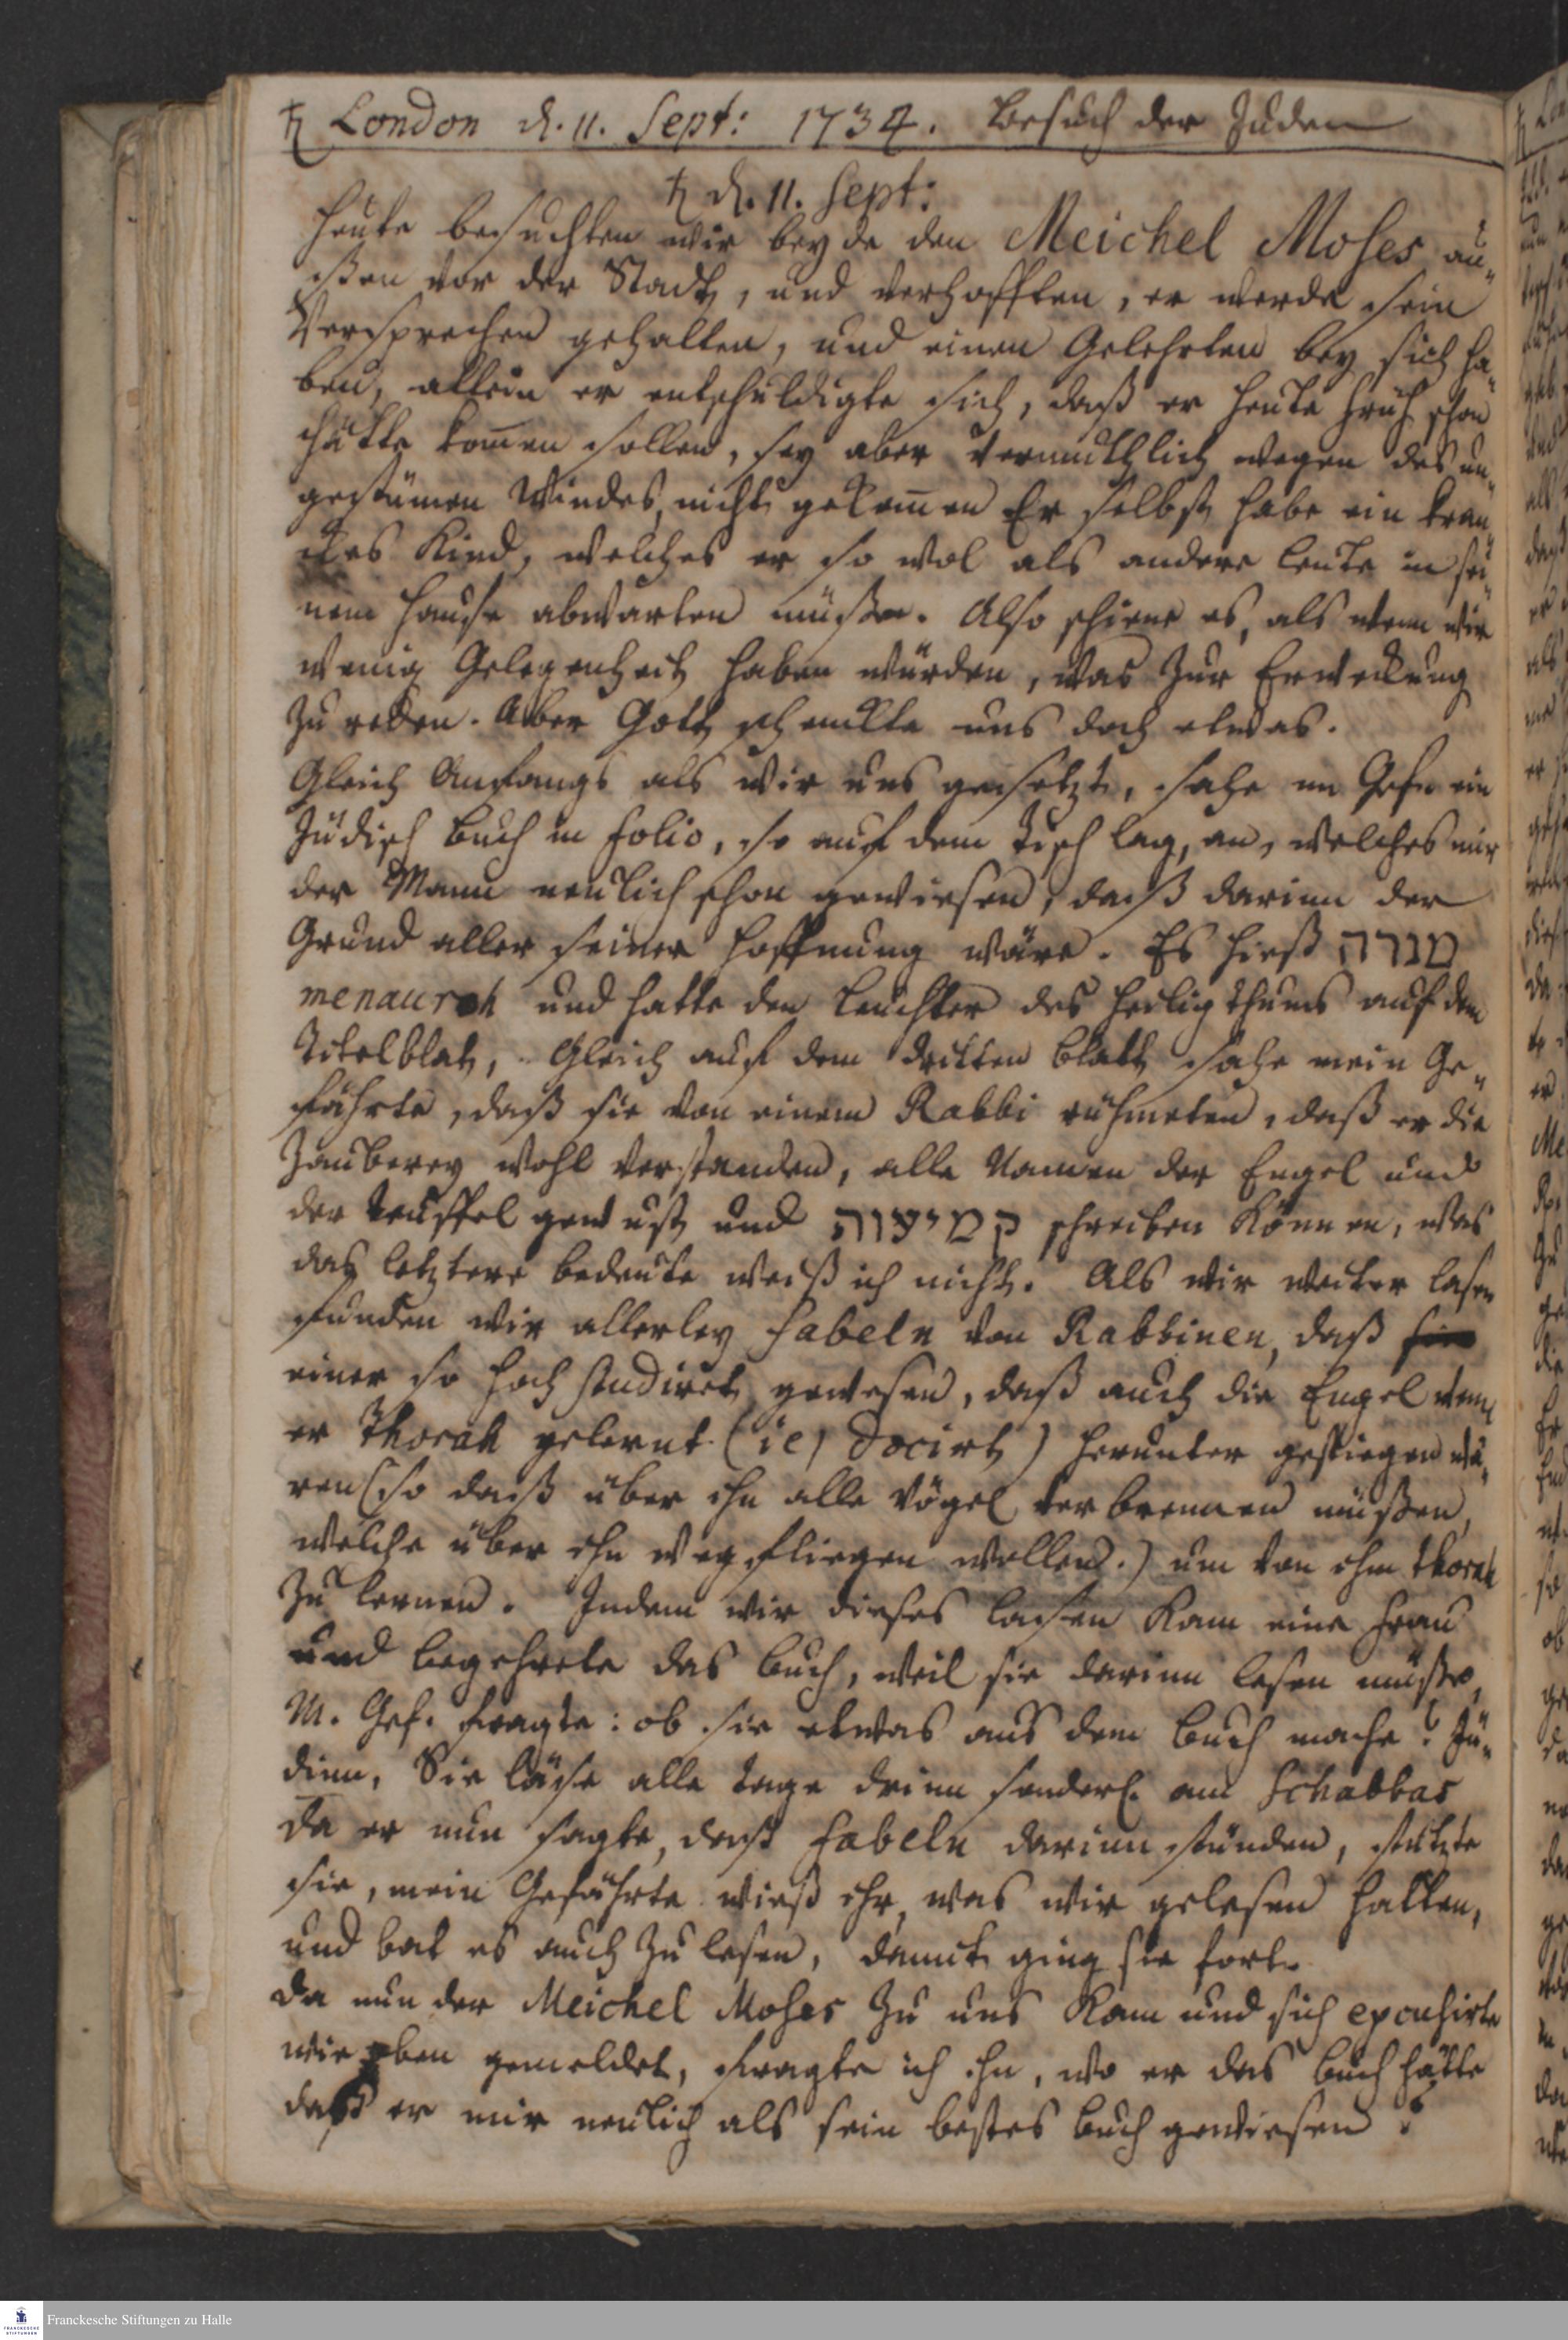 ♄ London d. 11. Sept: 1734. Besuch der Juden
♄ d. 11. Sept:
Heute besuchten wir beyde den Meichel Moses au-
ßen vor der Stadt, und verhofften, er werde sein
Versprechen gehalten, und einen Gelehrten bey sich ha-
ben, allein er entschuldigte sich, daß er heute früh schon
hätte kom̄en sollen, sey aber vermuthlich wegen des un-
gestümen Windes, nicht gekom̄en Er selbst habe ein kran-
ckes Kind, welches er so wol als andere Leute in sei-
nem Hause abwarten müße. Also schiene es, als wenn wir
wenig Gelegenheit haben würden, was zur Erweckung
zu reden. Aber Gott schenckte uns doch etwas.
Gleich Anfangs als wir uns gesetzt, sahe m Gefr ein
Jüdisch Buch in folio, so auf dem Tisch lag, an, welches mir
der Mann neulich schon gewiesen, daß darinn der
Grund aller seiner Hoffnung wäre. Es hieß מנרה
menaurah und hatte den Leuchter des Heiligthums auf dem
Titelblat, Gleich auf dem dritten Blatt sahe mein Ge-
fährte, daß sie von einem Rabbi rühmeten, daß er die
Zauberey wohl verstanden, alle Namen der Engel und
der Teuffel gewust und קמיעות schreiben können, was
das letztere bedeute weiß ich nicht. Als wir weiter lasen
funden wir allerley Fabeln von Rabbinen, daß sie
einer so hoch studiret gewesen, daß auch die Engel wenn
er Thorah gelernt (ie, docirt) herunter gestiegen wä-
ren (so daß über ihn alle Vögel verbrennen müßen,
welche über ihn wegfliegen wollen.) um von ihm Thorah
zu lernen. Indem wir dieses lasen kam eine Frau
und begehrete das Buch, weil sie darinn lesen müße,
M. Gef. fragte: ob sie etwas aus dem Buch mache? Jü-
dinn, Sie läse alle Tage drinn sonderl. am Schabbas
Da er nun sagte, daß Fabeln darinn stünden, stutzte
sie, mein Gefährte wieß ihr, was wir gelesen hatten,
und bat es auch zu lesen, damit ging sie fort.
Da nun der Meichel Moses zu uns kam und sich excusirte
wie oben gemeldet, fragte ich ihn, wo er das Buch hätte
daß er mir neulich als sein bestes Buch gewiesen?
Franckesche Stiftungen zu Halle
FRANCKESCHE
STIFTUNGEN